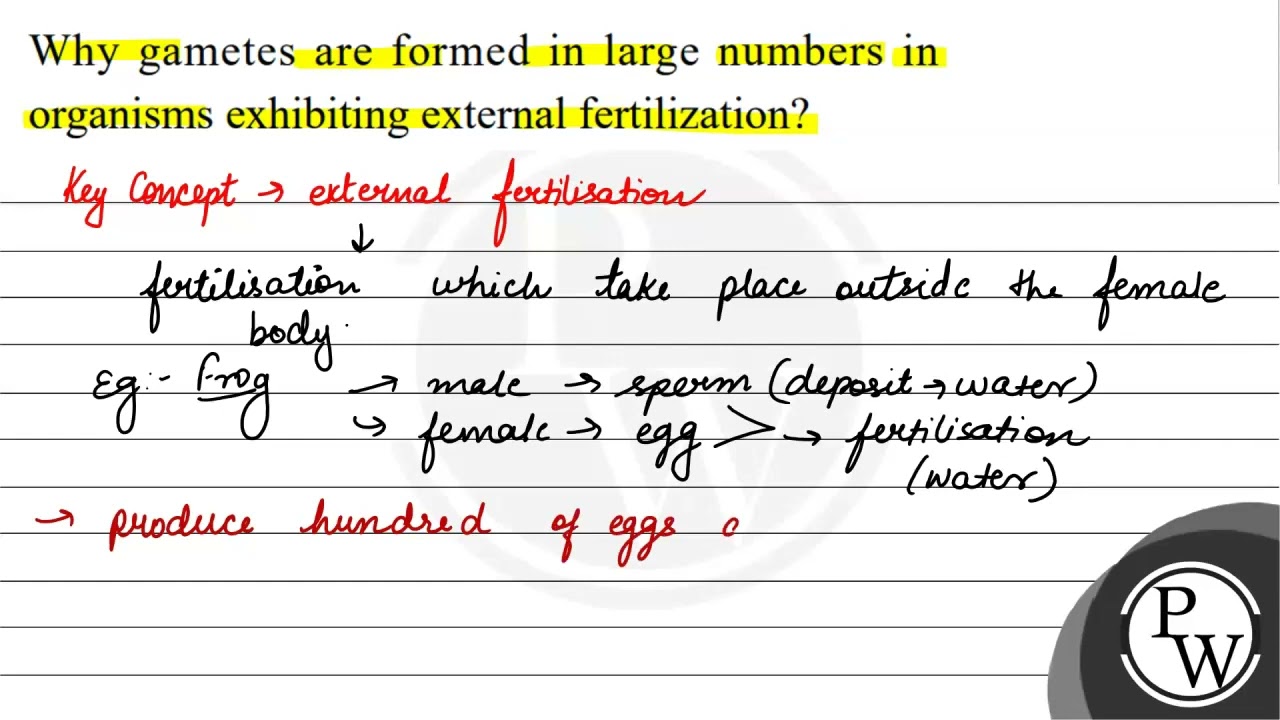 Why gametes are formed in large numbers in
organisms exhibiting external fertilization?
Key Concept → external fertilisation
↓
fertilisation which take place outside the female
body.
Eg:- Frog → male → sperm (deposit → water)
↳ female → egg > → fertilisation
(water)
→ produce hundred of eggs
P
W